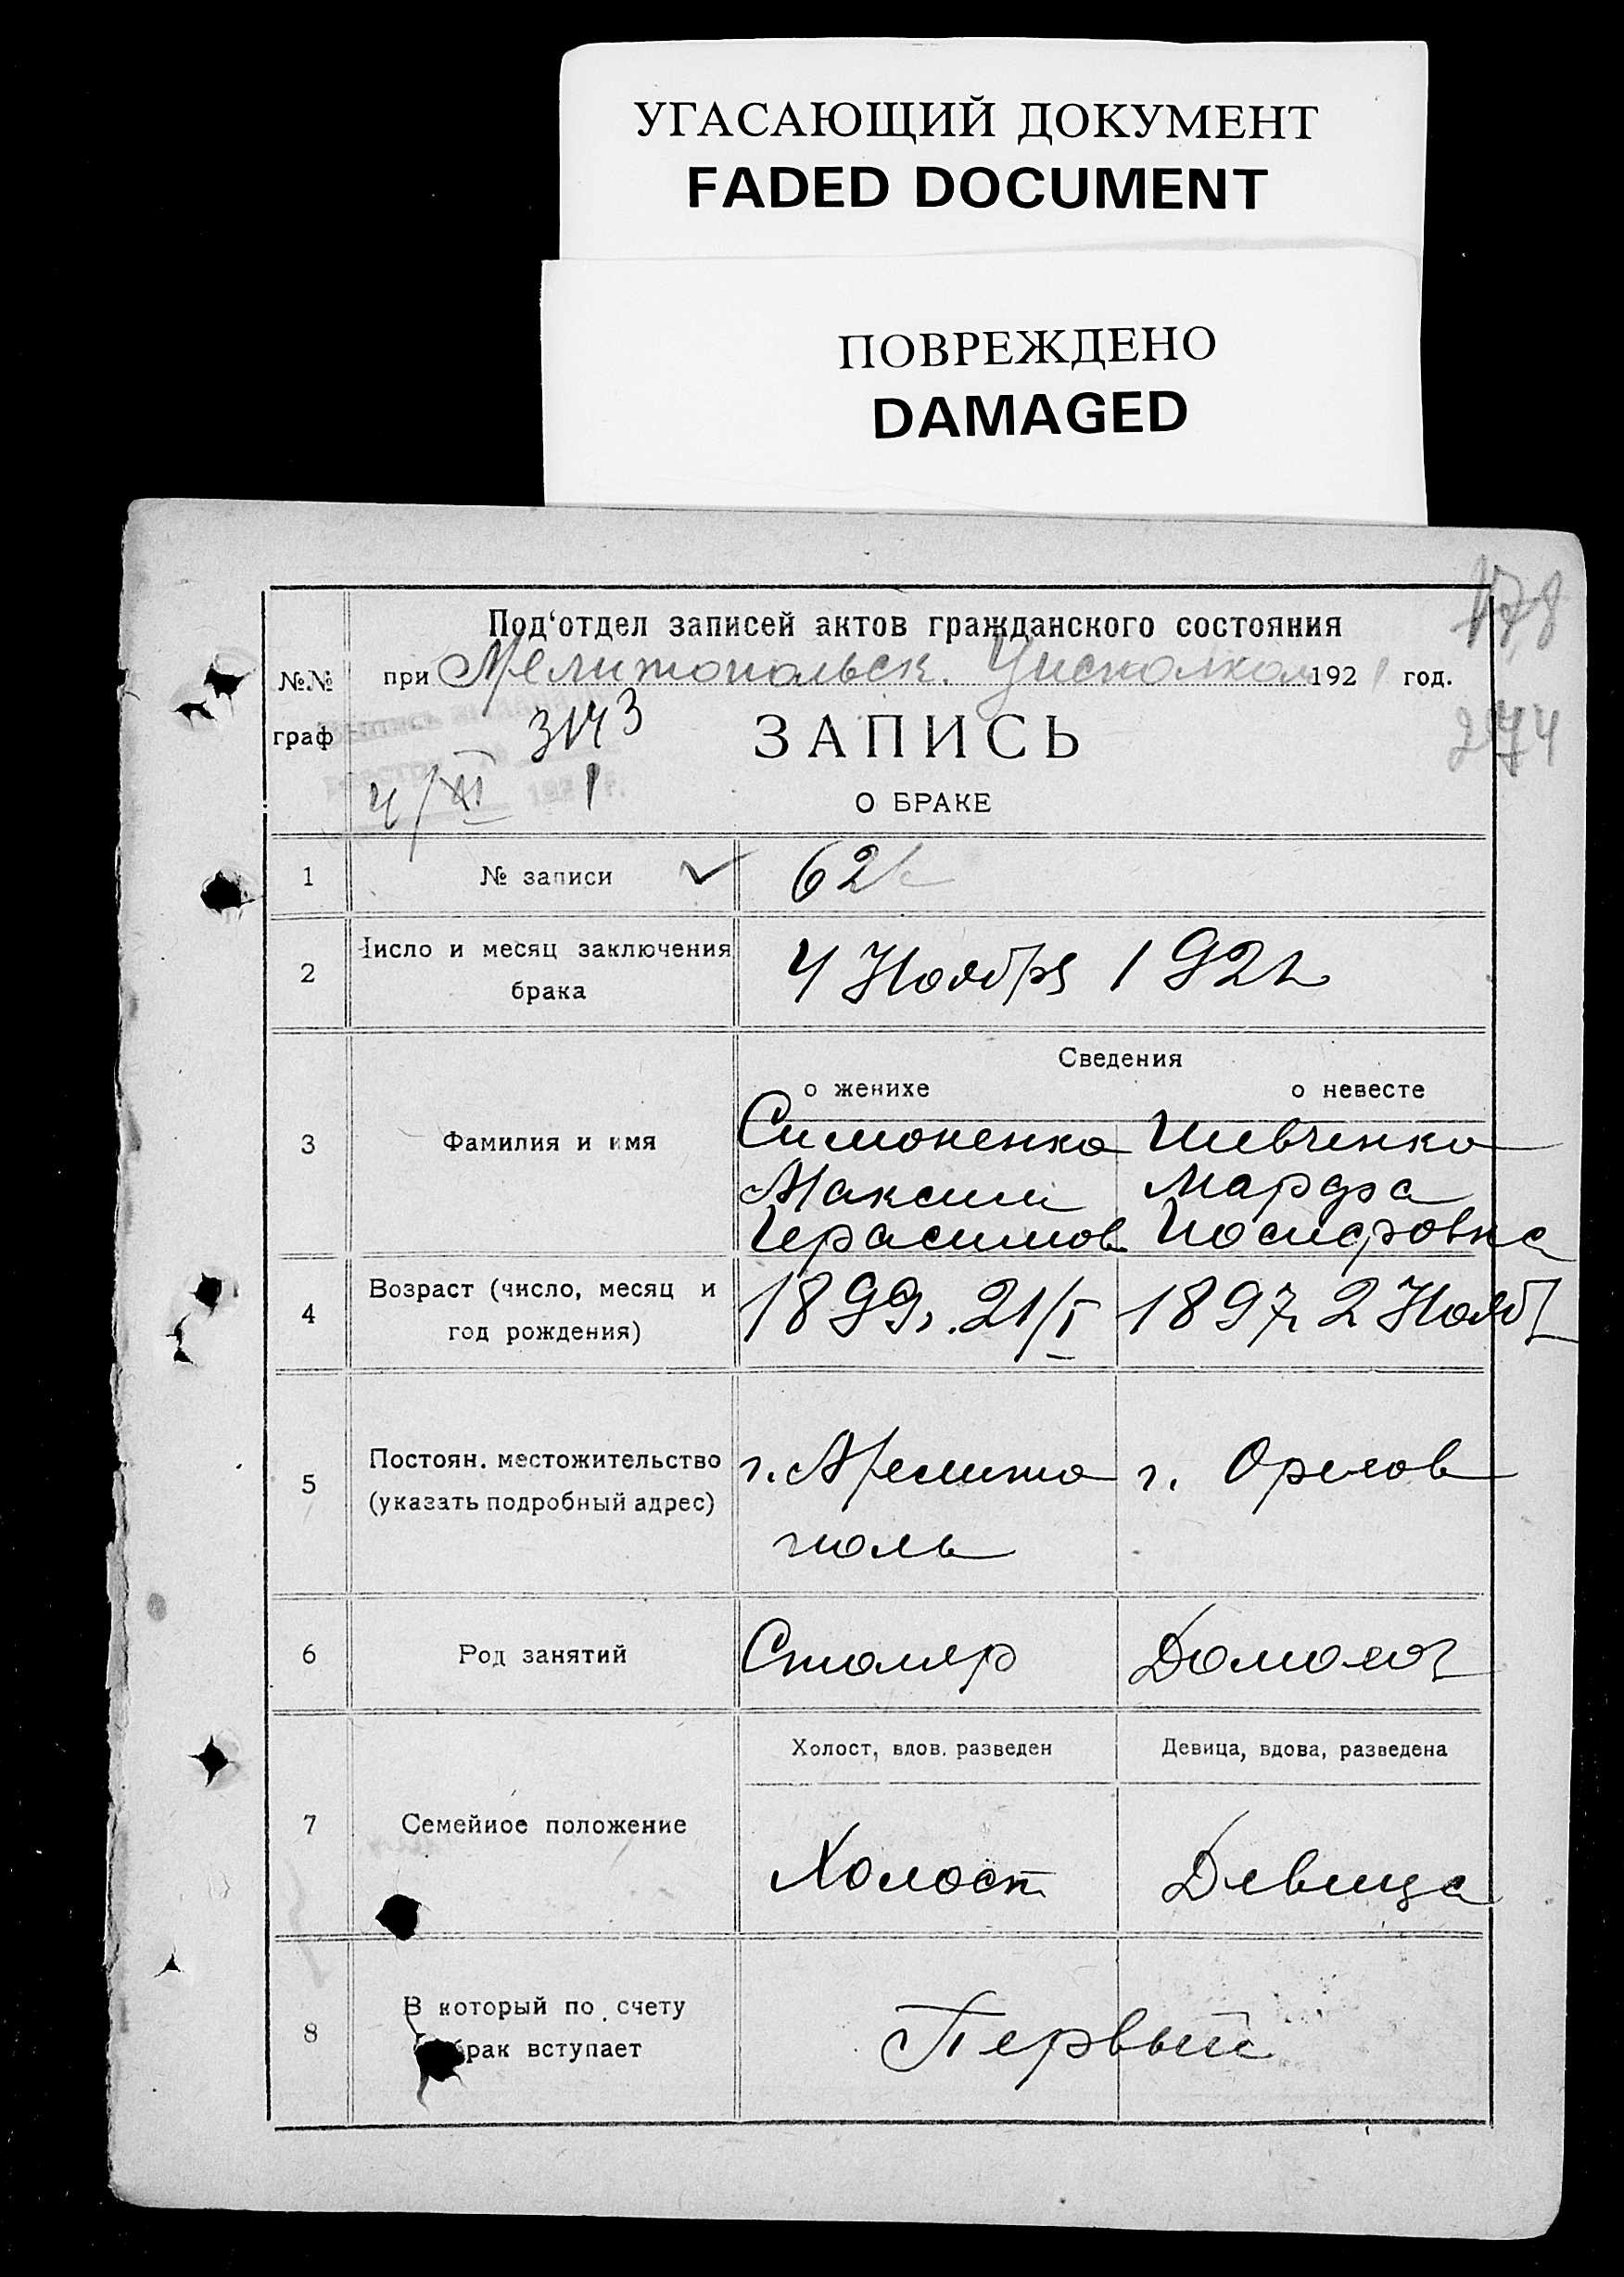 УГАСАЮЩИЙ ДОКУМЕНТ
FADED DOCUMENT
ПОВРЕЖДЕНО
DAMAGED
178
Под‘отдел записей актов гражданского состояния
№№ при Мелитопольск. Уисполком 192 1 год.
274
граф 3143 ЗАПИСЬ
4/XI 1
О БРАКЕ
1 № записи 621
2 Число и месяц заключения брака 4 Ноября 1921
Сведения
о женихе о невесте
3 Фамилия и имя Симоненко Шевченко
Максим Марфа
Герасимов Иосифовна
4 Возраст (число, месяц и
год рождения) 1899г. 21/I 1897г. 2 Нояб
5 Постоян. местожительство г. Мелито г. Орехов
(указать подробный адрес) поль
6 Род занятий Столяр Домохоз
Холост, вдов. разведен Девица, вдова, разведена
7 Семейное положение Холост Девица
8 В который по счету
брак вступает Первый